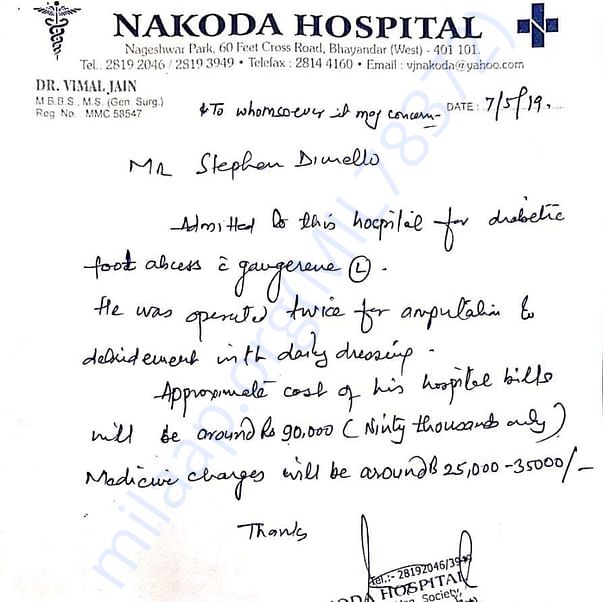 NAKODA HOSPITAL
Nageshwar Park, 60 Feet Cross Road, Bhayandar (West) - 401 101.
Tel.: 2819 2046 / 2819 3949 • Telefax : 2814 4160 • Email : vjnakoda@yahoo.com
DR. VIMAL JAIN
M.B.B.S., M.S. (Gen. Surg.)
Reg. No. MMC 58547
DATE : 7/5/19.
To whomsoever it may concern
Mr Stephen Dimello
Admitted to this hospital for diabetic
foot abcess c̄ gangerene (L).
He was operated twice for amputation &
debridement with daily dressing.
Approximate cost of his hospital bills
will be around Rs 90,000 (Ninty thousands only)
Medicine charges will be around Rs 25,000 - 35000/-
Thanks
Tel.:- 28192046/39
HOSPITAL
Society,
milaap.org(MIL78372)